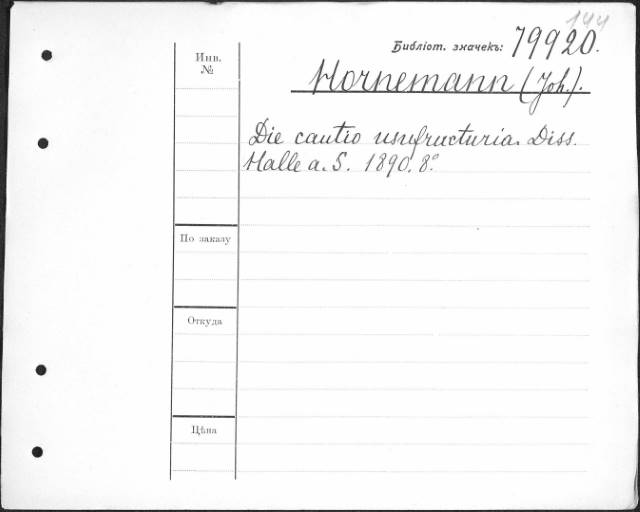 144
Библіот. значекъ: 79920.
Инв. №
Hornemann (Joh.).
Die cautio usufructuria. Diss.
Halle a. S. 1890. 8°
По заказу
Откуда
Цѣна